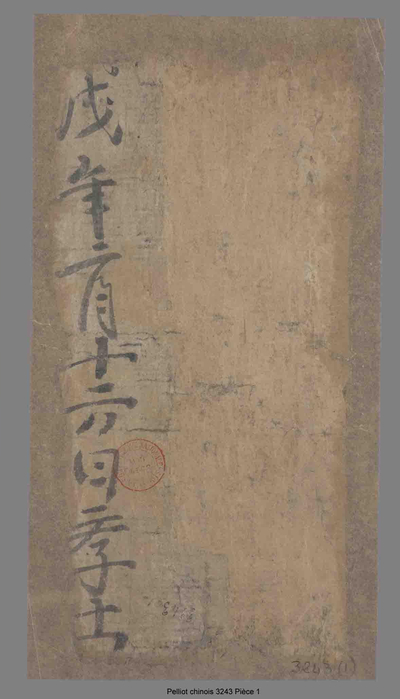 戌年二月十六日斈士
3243(1)
Pelliot chinois 3243 Pièce 1